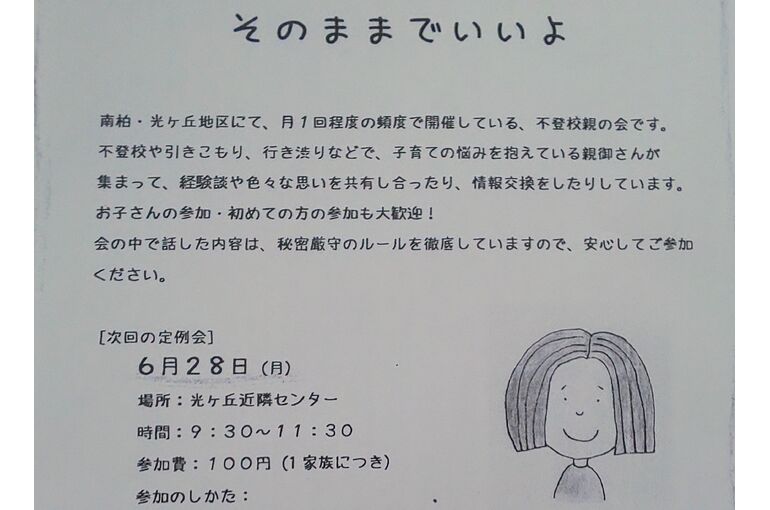 そのままでいいよ
南柏・光ヶ丘地区にて、月1回程度の頻度で開催している、不登校親の会です。
不登校や引きこもり、行き渋りなどで、子育ての悩みを抱えている親御さんが
集まって、経験談や色々な思いを共有し合ったり、情報交換をしたりしています。
お子さんの参加・初めての方の参加も大歓迎！
会の中で話した内容は、秘密厳守のルールを徹底していますので、安心してご参加
ください。
[次回の定例会]
6月28日（月）
場所：光ヶ丘近隣センター
時間：9：30～11：30
参加費：100円（1家族につき）
参加のしかた：